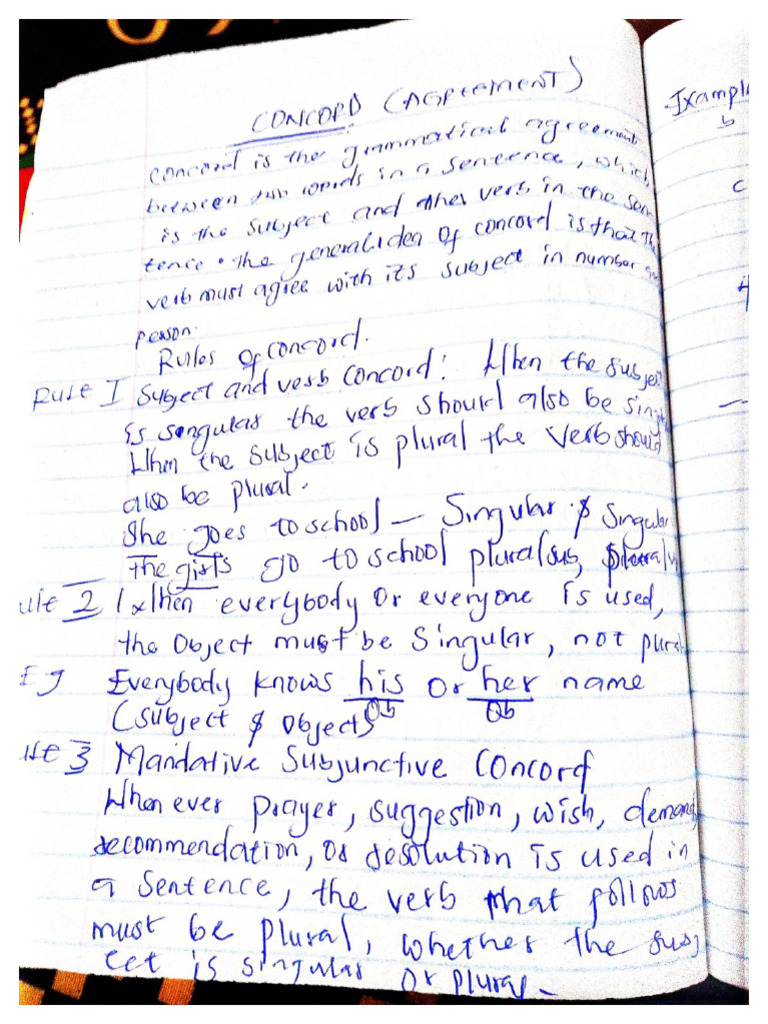 CONCORD (AGREEMENT)
Concord is the grammatical agreement
between two words in a sentence, which
is the subject and other verb in the sen
tence. The general idea of concord is that Th
verb must agree with its subject in number and
person.
Rules of Concord.
Rule I Subject and verb Concord: When the subject
is singular the verb should also be sing
When the subject is plural the verb should
also be plural.
She goes to school — Singular & Singular
The girls go to school plural sub, plural v
ule 2 When everybody or everyone is used,
the Object must be Singular, not plural
Eg Everybody knows his or her name
Ob Ob
(Subject & Objects
ule 3 Mandative Subjunctive Concord
When ever prayer, suggestion, wish, demand,
recommendation, or resolution is used in
a Sentence, the verb that follows
must be plural, whether the subj
ect is singular or plural.
Example
b
c
4